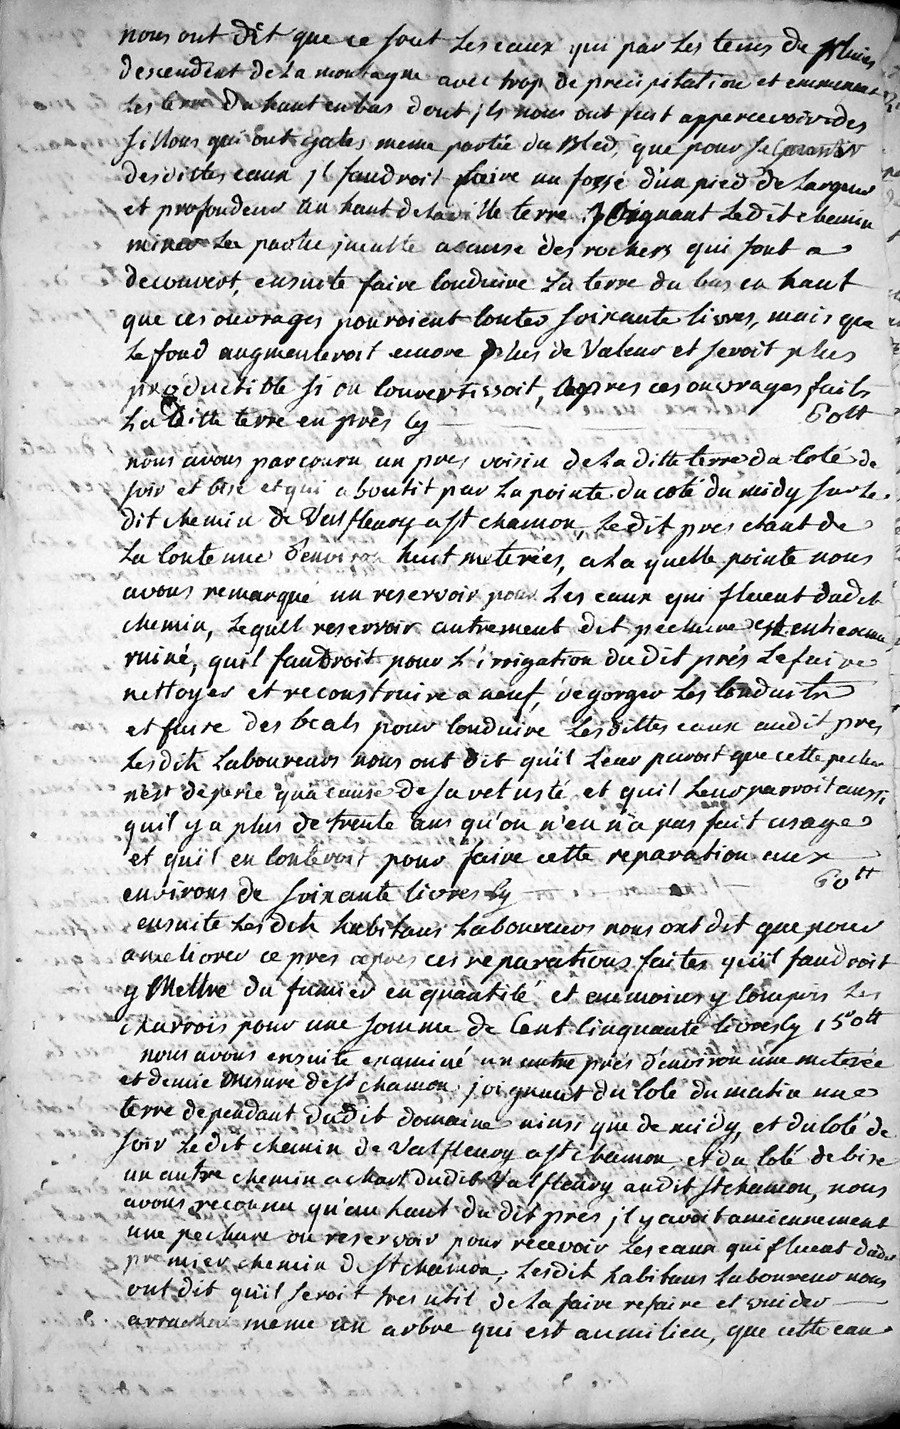 nous ont dit que ce sont les eaux qui par les tems de pluies
descendent de la montagne avec trop de precipitation et emmennent
les terre du haut en bas dont jls nous ont fait appercevoir des
sillons qui ont gatés meme partie du Bled, que pour se garantir
desdittes eaux jl faudroit faire un fossé d'un pied de largeur
et profondeur au haut de laditte terre joignant ledit chemin
miner la partie jnculte a cause des rochers qui sont a
decouvert, ensuite faire conduire la terre du bas en haut
que ces ouvrages pouroient couter soixante livres, mais que
le fond augmenteroit encore plus de valeur et seroit plus
productible si on convertissoit, apres ces ouvrages faits
la ditte terre en près cy 60tt
nous avons parcouru un pres voisin de la ditte terre du coté de
soir et bise et qui aboutit par la pointe du coté du midy sur le
dit chemin de Valfleury a st chamon, ledit pres etant de
la contenue d'environ huit meterées, a la quelle pointe nous
avons remarqué un reservoir pour les eaux qui fluent dudit
chemin, lequel reservoir autrement dit pechure est entierement
ruiné, quil faudroit pour l'irrigation dudit prés le faire
nettoyer et reconstruire a neuf, degorger les conduits
et faire des beals pour conduire lesdittes eaux audit pres
lesdits laboureurs nous ont dit qu'il leur paroit que cette pechure
n'est deperie qu'a cause de sa vetusté et quil leur parroit aussi
quil y a plus de trente ans qu'on n'en n'a pas fait usage
et quil en couteroit pour faire cette reparation aux
environs de soixante livres cy 60tt
ensuite lesdits habitans laboureurs nous ont dit que pour
ameliorer ce pres apres ces reparations faites qu'il faudroit
y Mettre du fumier en quantité et au moins y compris les
charrois pour une somme de Cent Cinquante livres cy 150tt
nous avons ensuite examiné un autre prés d'environ une meterée
et demie Mesure de st chamon, joignant du coté du matin une
terre dependant dudit domaine ainsi que de midy, et du coté de
soir le dit chemin de Valfleury a st chamon, et du coté de bise
un autre chemin a char dudit Valfleury audit st chamon, nous
avons reconnu qu'au haut dudit prés jl y avoit anciennement
une pechure ou reservoir pour recevoir les eaux qui fluent dudit
premier chemin de st chamon, lesdits habitans laboureur nous
ont dit quil seroit tres util de la faire refaire et vuider
arracher meme un arbre qui est au milieu, que cette eau